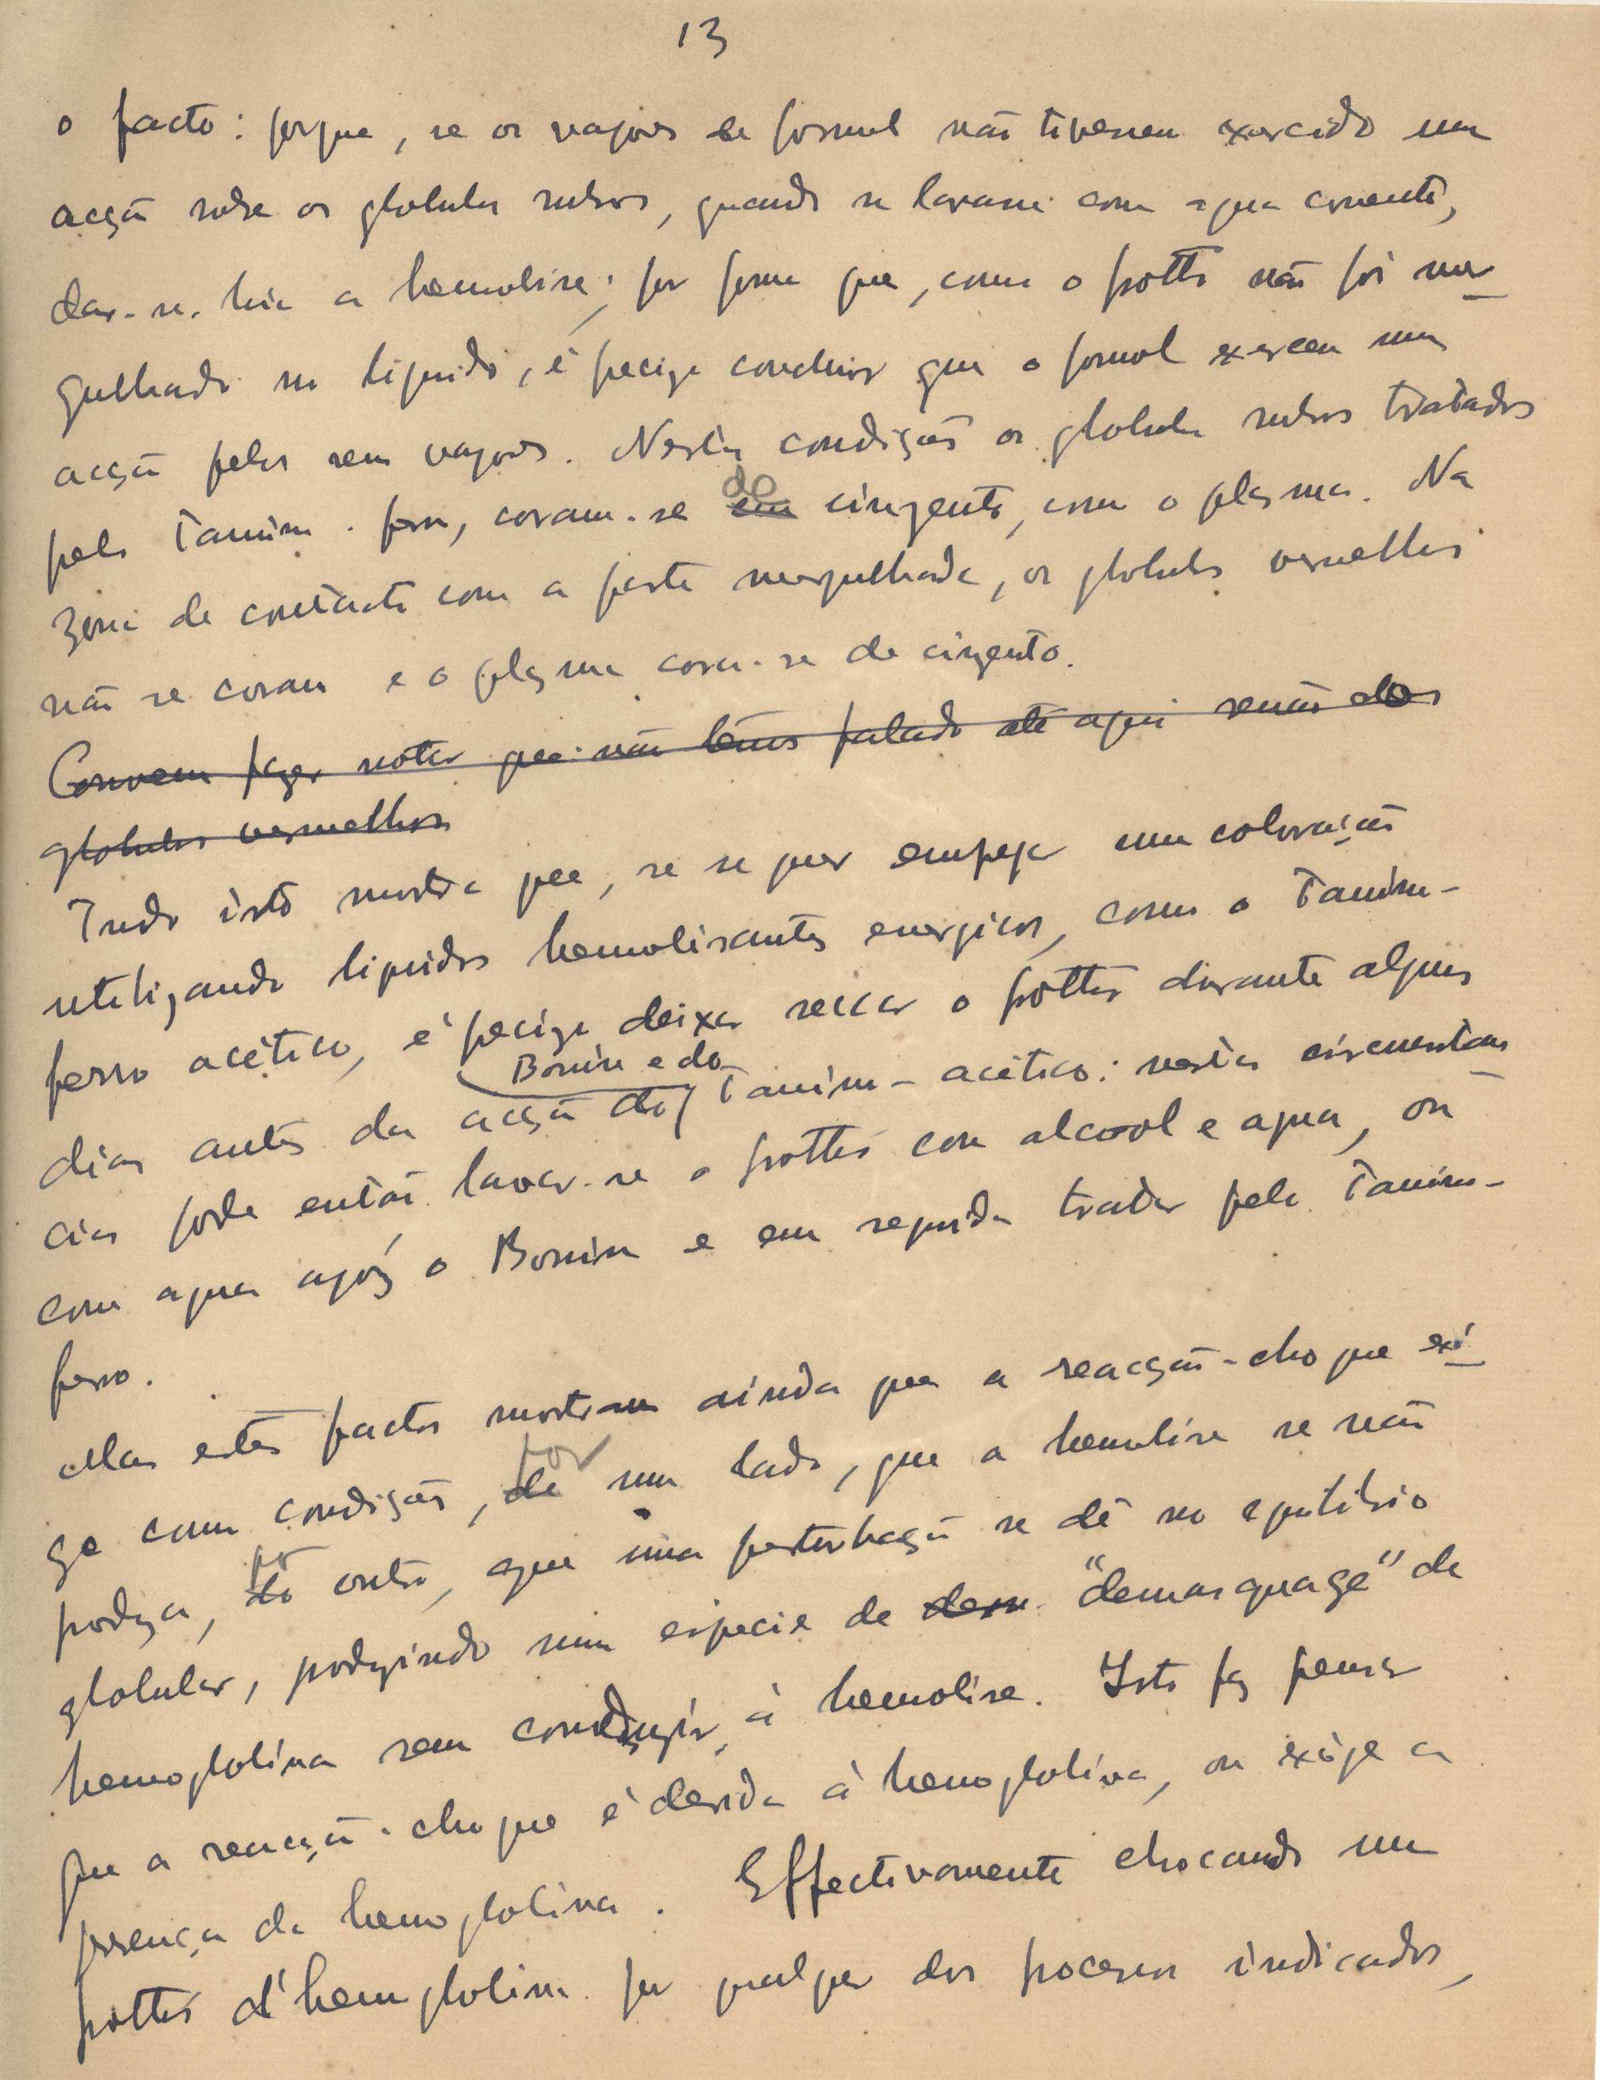 13
o facto: porque, se os vapores de formol não tivessem exercido uma
acção sobre os globulos rubros, quando se lavasse com agua corrente,
dar-se-hia a hemolise; por forma que, como o frotti não foi mer-
gulhado no liquido, é precizo concluir que o formol exerceu uma
acção pelos seus vapores. Nestas condições os globulos rubros tratados
pelo Tanino-ferro, coram-se em do cinzento, como o plasma. Na
zona de contacto com a parte mergulhada, os globulos vermelhos
não se coram e o plasma cora-se de cinzento.
Convem fazer notar que não temos falado até aqui senão dos
globulos vermelhos
Tudo isto mostra que, se se quer empregar uma coloração
utilizando liquidos hemolisantes energicos, como o Tanino-
ferro acético, é precizo deixar seccar o frottis durante alguns
Bouin e do
dias antes da acção do Tanino-acético: nestas circunstan-
cias pode então lavar-se o frottis com alcool e agua, ou
com agua após o Bouin e em seguida tratar pelo Tanino-
ferro.
Mas estes factos mostram ainda que a reacção-choque exi-
por
ge como condições, de um lado, que a hemolise se não
por
produza, do outro, que uma perturbação se dê no equilibrio
globular, produzindo uma especie de dem "demasquage" da
hemoglobina sem conduzir á hemolise. Isto faz pensar
que a reacção-choque é devida á hemoglobina, ou exige a
presença da hemoglobina. Effectivamente chocando um
frottis d'hemoglobina por qualquer dos processos indicados,